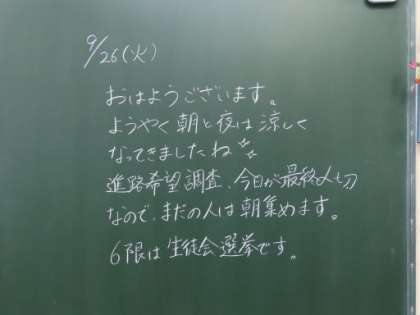 9/26(火)
おはようございます。
ようやく朝と夜は涼しく
なってきましたね✨
進路希望調査、今日が最終〆切
なので、まだの人は朝集めます。
6限は生徒会選挙です。